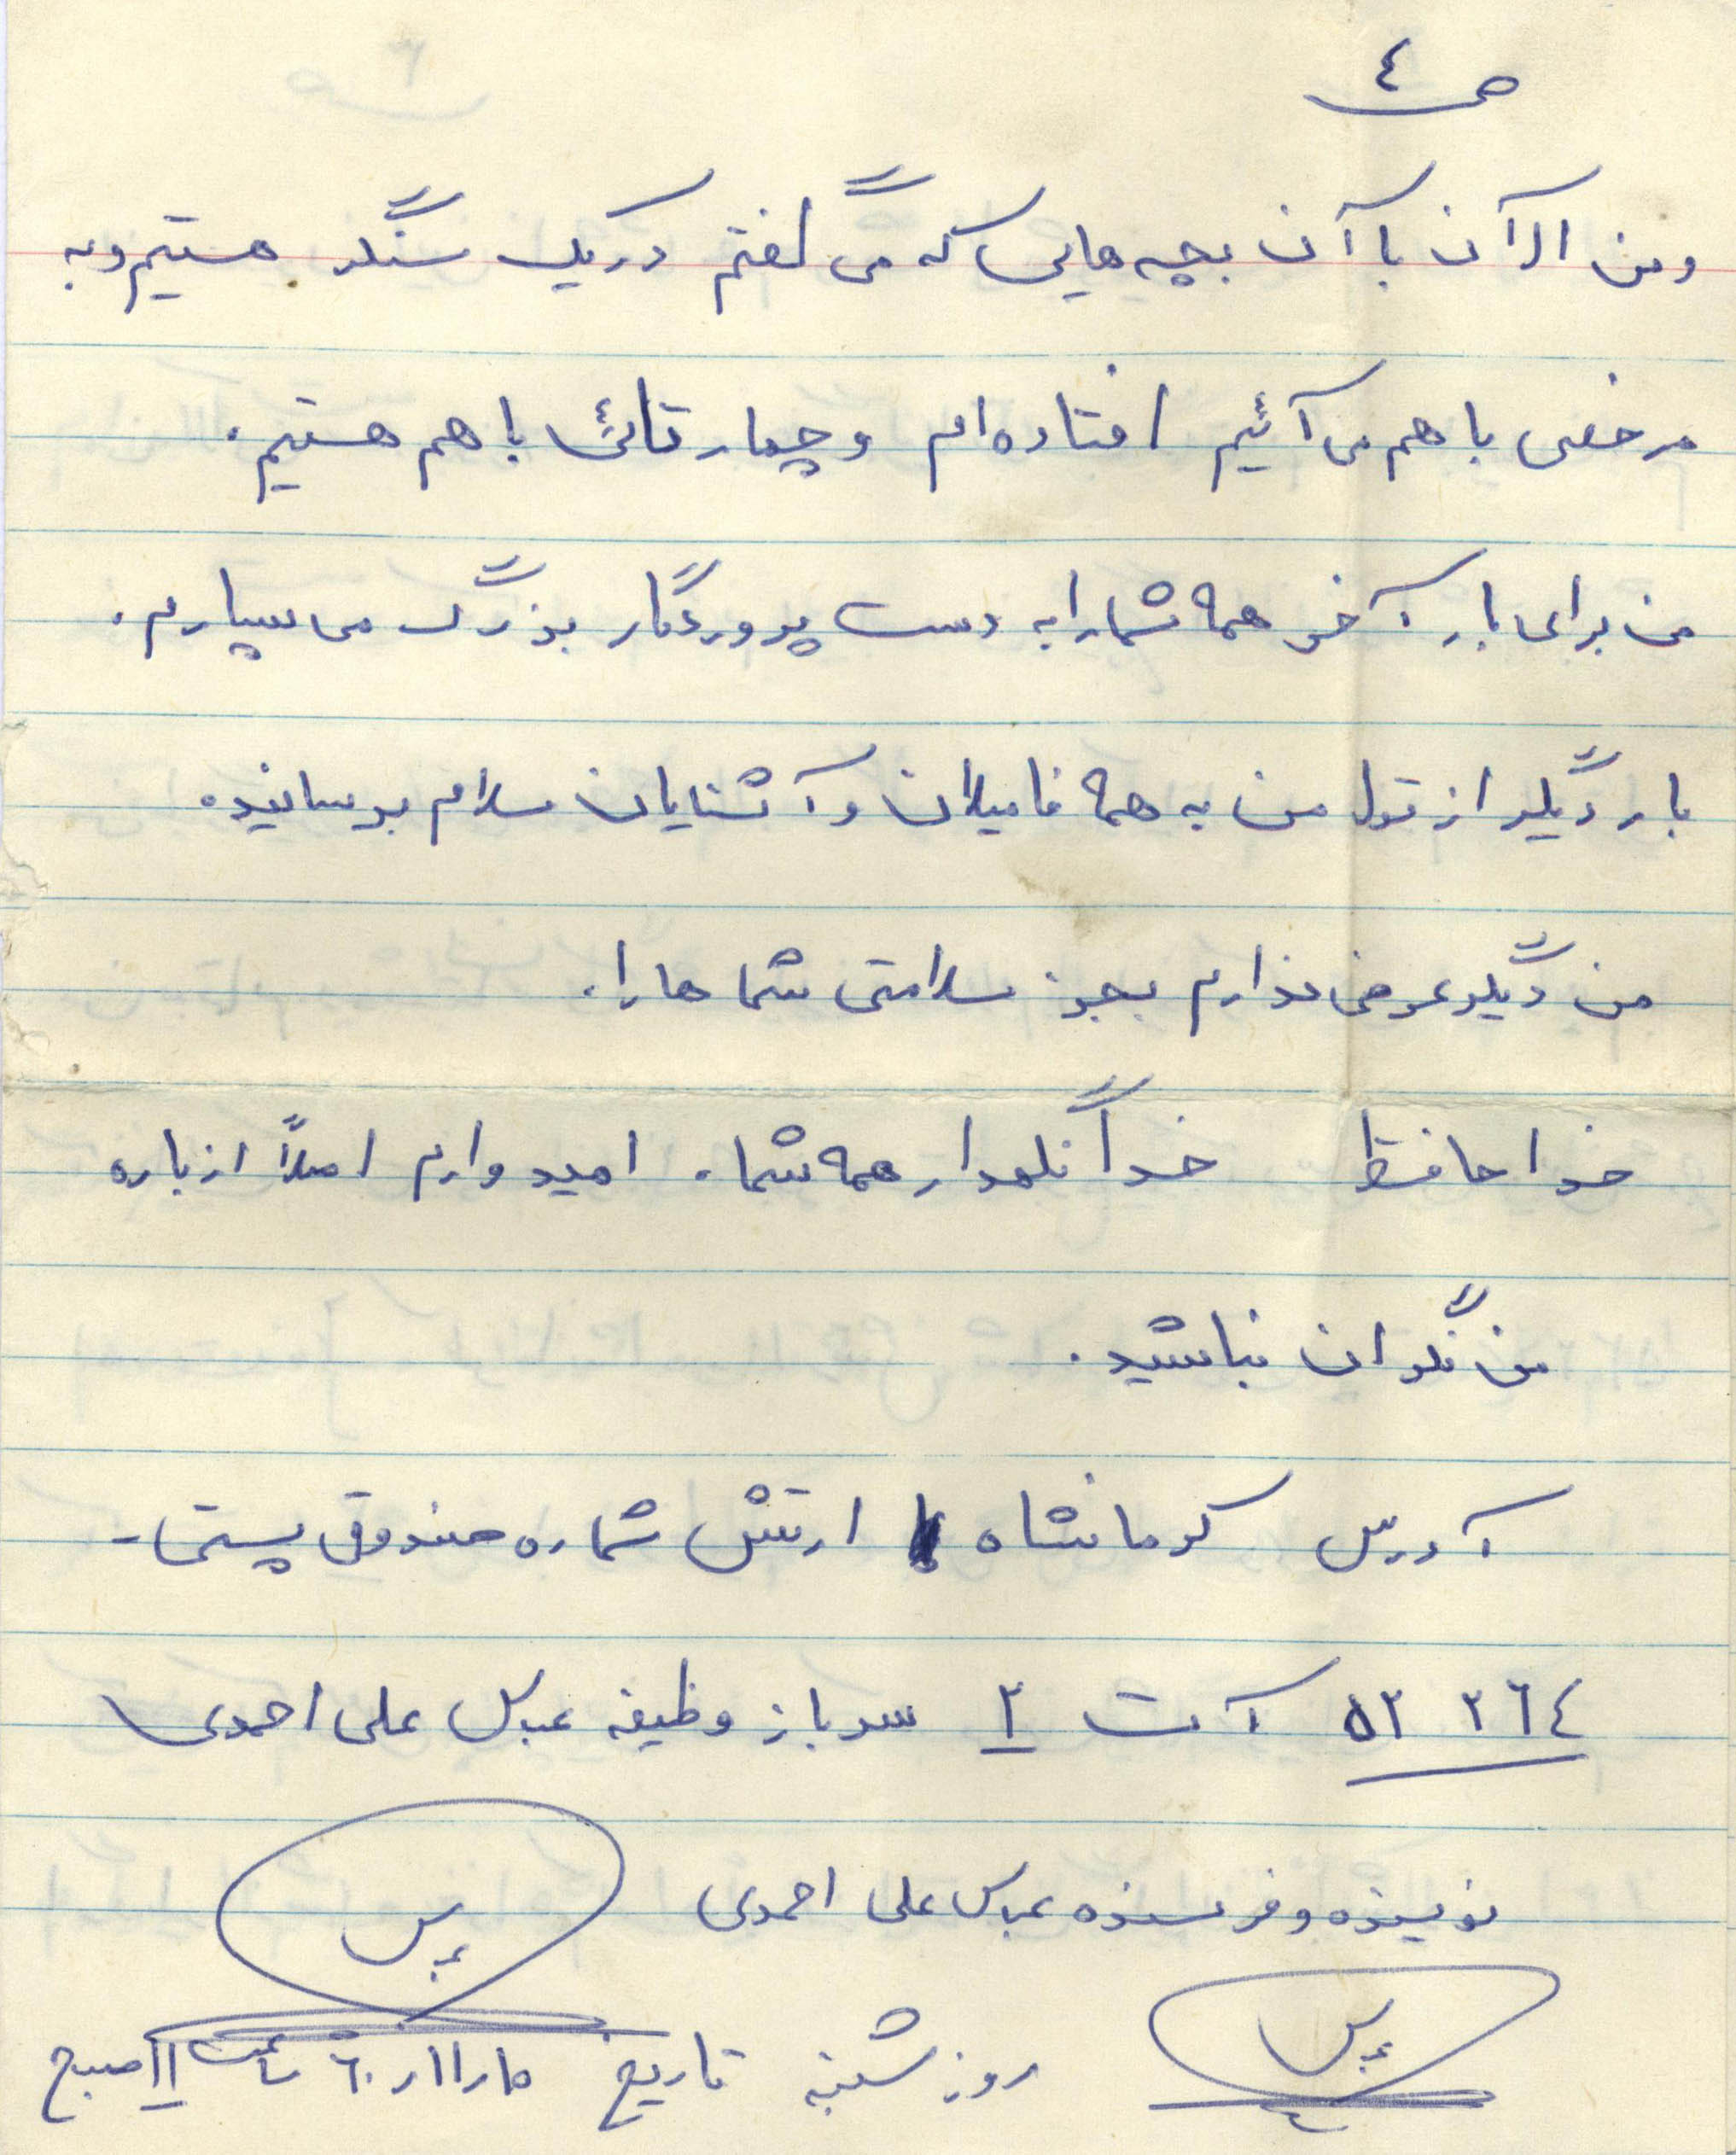 ص ٤
ومن الآن با آن بچه هایی که می گفتم در یک سنگر هستیم و به
مرخصی با هم می آئیم افتاده ام و چهار تائی با هم هستیم.
من برای بار آخر همه شما را به دست پروردگار بزرگ می سپارم.
بار دیگر از قول من به همه فامیلان و آشنایان سلام برسانید.
من دیگر عرضی ندارم بجز سلامتی شما ها را.
خدا حافظ خدا نگهدار همه شما. امید وارم اصلاً از باره
من نگران نباشید.
آدرس کرمانشاه ارتش شماره صندوق پستی -
۵۲ ۲٦٤ آت ۲ سرباز وظیفه عباس علی احمدی
نویسنده و فرستنده عباس علی احمدی
عباس
عباس
روز شنبه تاریخ ٦۰ ساعت ۱۱ صبح